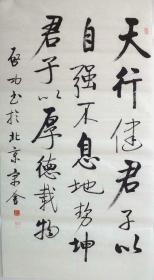 天行健君子以
自强不息地势坤
君子以厚德载物
启功书于北京京会